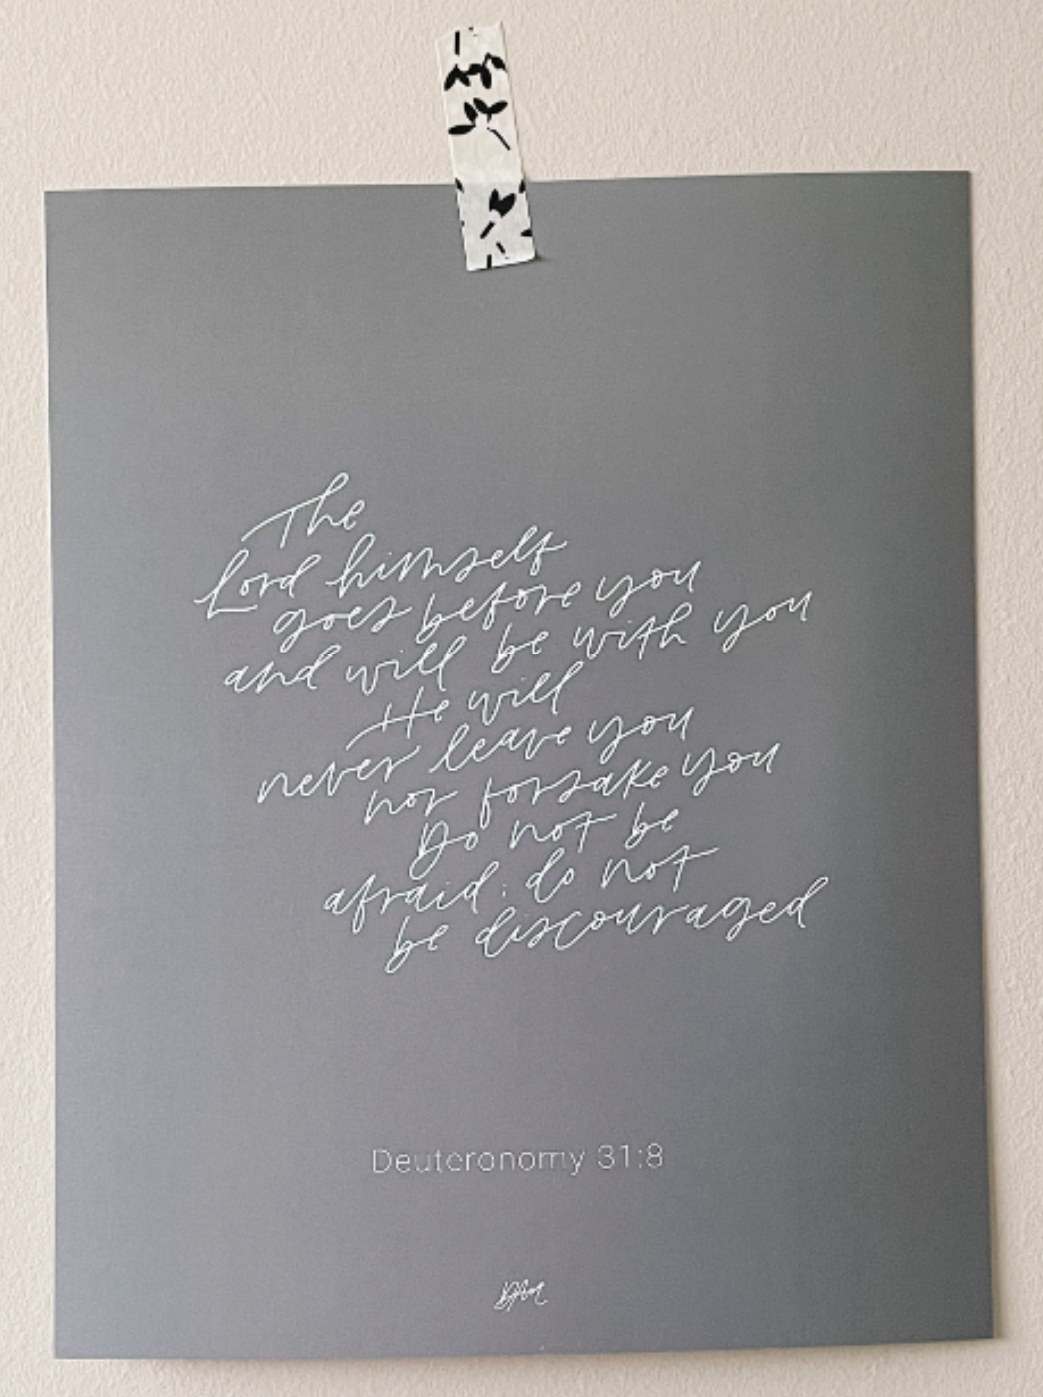 The
Lord himself
goes before you
and will be with you
He will
never leave you
nor forsake you
Do not be
afraid; do not
be discouraged
Deuteronomy 31:8